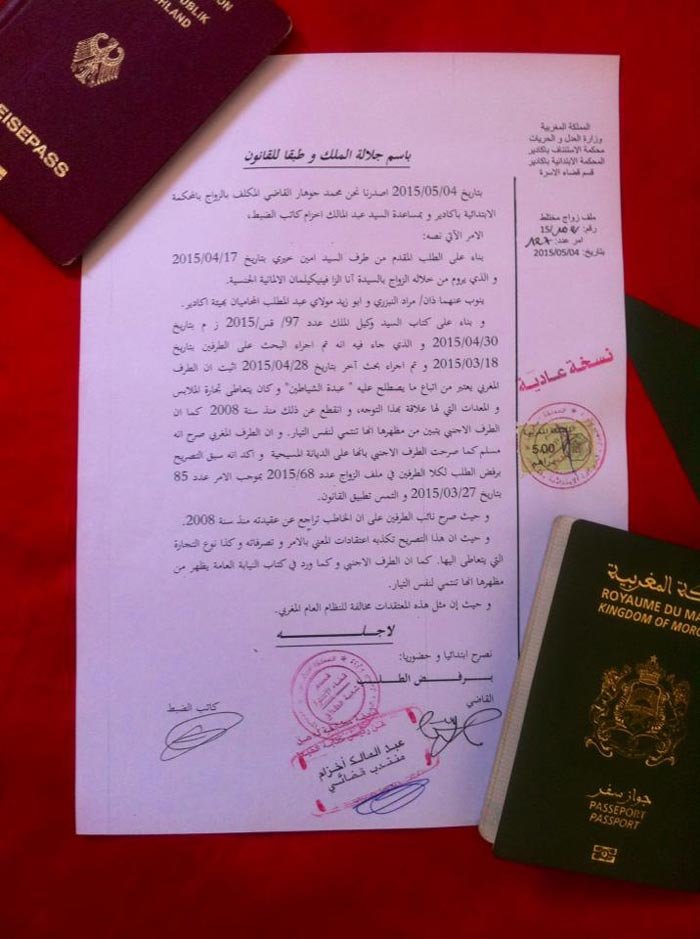 ON
PUBLIK
CHLAND
EISEPASS
المملكة المغربية
وزارة العدل و الحريات
محكمة الاستئناف بأكادير
المحكمة الابتدائية بأكادير
قسم قضاء الاسرة
ملف زواج مختلط
رقم: 15/
امر عدد: 127
بتاريخ: 2015/05/04
باسم جلالة الملك و طبقا للقانون
بتاريخ 2015/05/04 اصدرنا نحن محمد جوهار القاضي المكلف بالزواج بالمحكمة
الابتدائية بأكادير و بمساعدة السيد عبد المالك اخزام كاتب الضبط،
الامر الآتي نصه:
بناء على الطلب المقدم من طرف السيد امين خيري بتاريخ 2015/04/17
و الذي يروم من خلاله الزواج بالسيدة آنا الزا فينيكيلمان الالمانية الجنسية.
ينوب عنهما ذان/ مراد النيزري و ابو زيد مولاي عبد المطلب المحاميان بهيئة اكادير.
و بناء على كتاب السيد وكيل الملك عدد 97/ قس/2015 ز م بتاريخ
2015/04/30 و الذي جاء فيه انه تم اجراء البحث على الطرفين بتاريخ
2015/03/18 و تم اجراء بحث آخر بتاريخ 2015/04/28 اثبت ان الطرف
المغربي يعتبر من اتباع ما يصطلح عليه " عبدة الشياطين" و كان يتعاطى تجارة الملابس
و المعدات التي لها علاقة بهذا التوجه، و انقطع عن ذلك منذ سنة 2008 كما ان
الطرف الاجنبي يتبين من مظهرها انها تنتمي لنفس التيار. و ان الطرف المغربي صرح انه
مسلم كما صرحت الطرف الاجنبي بانها على الديانة المسيحية و اكد انه سبق التصريح
برفض الطلب لكلا الطرفين في ملف الزواج عدد 2015/68 بموجب الامر عدد 85
بتاريخ 2015/03/27 و التمس تطبيق القانون.
و حيث صرح نائب الطرفين على ان الخاطب تراجع عن عقيدته منذ سنة 2008.
و حيث ان هذا التصريح تكذبه اعتقادات المعني بالامر و تصرفاته و كذا نوع التجارة
التي يتعاطى اليها. كما ان الطرف الاجنبي و كما ورد في كتاب النيابة العامة يظهر من
مظهرها انها تنتمي لنفس التيار.
و حيث إن مثل هذه المعتقدات مخالفة للنظام العام المغربي.
لاجلـــه
نصرح ابتدائيا و حضوريا:
برفض الطلب
القاضي
كاتب الضبط
نسخة عادية
5.00
عبد المالك أخزام
منتدب قضائي
المملكة المغربية
ROYAUME DU MA
KINGDOM OF MORO
جواز سفر
PASSEPORT
PASSPORT